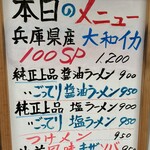 本日のメニュー
兵庫県産 大和イカ
100SP 1,200
純正上品 醤油ラーメン 900
〃 こってり 醤油ラーメン 950
純正上品 塩ラーメン 900
〃 こってり 塩ラーメン 950
つけメン 950